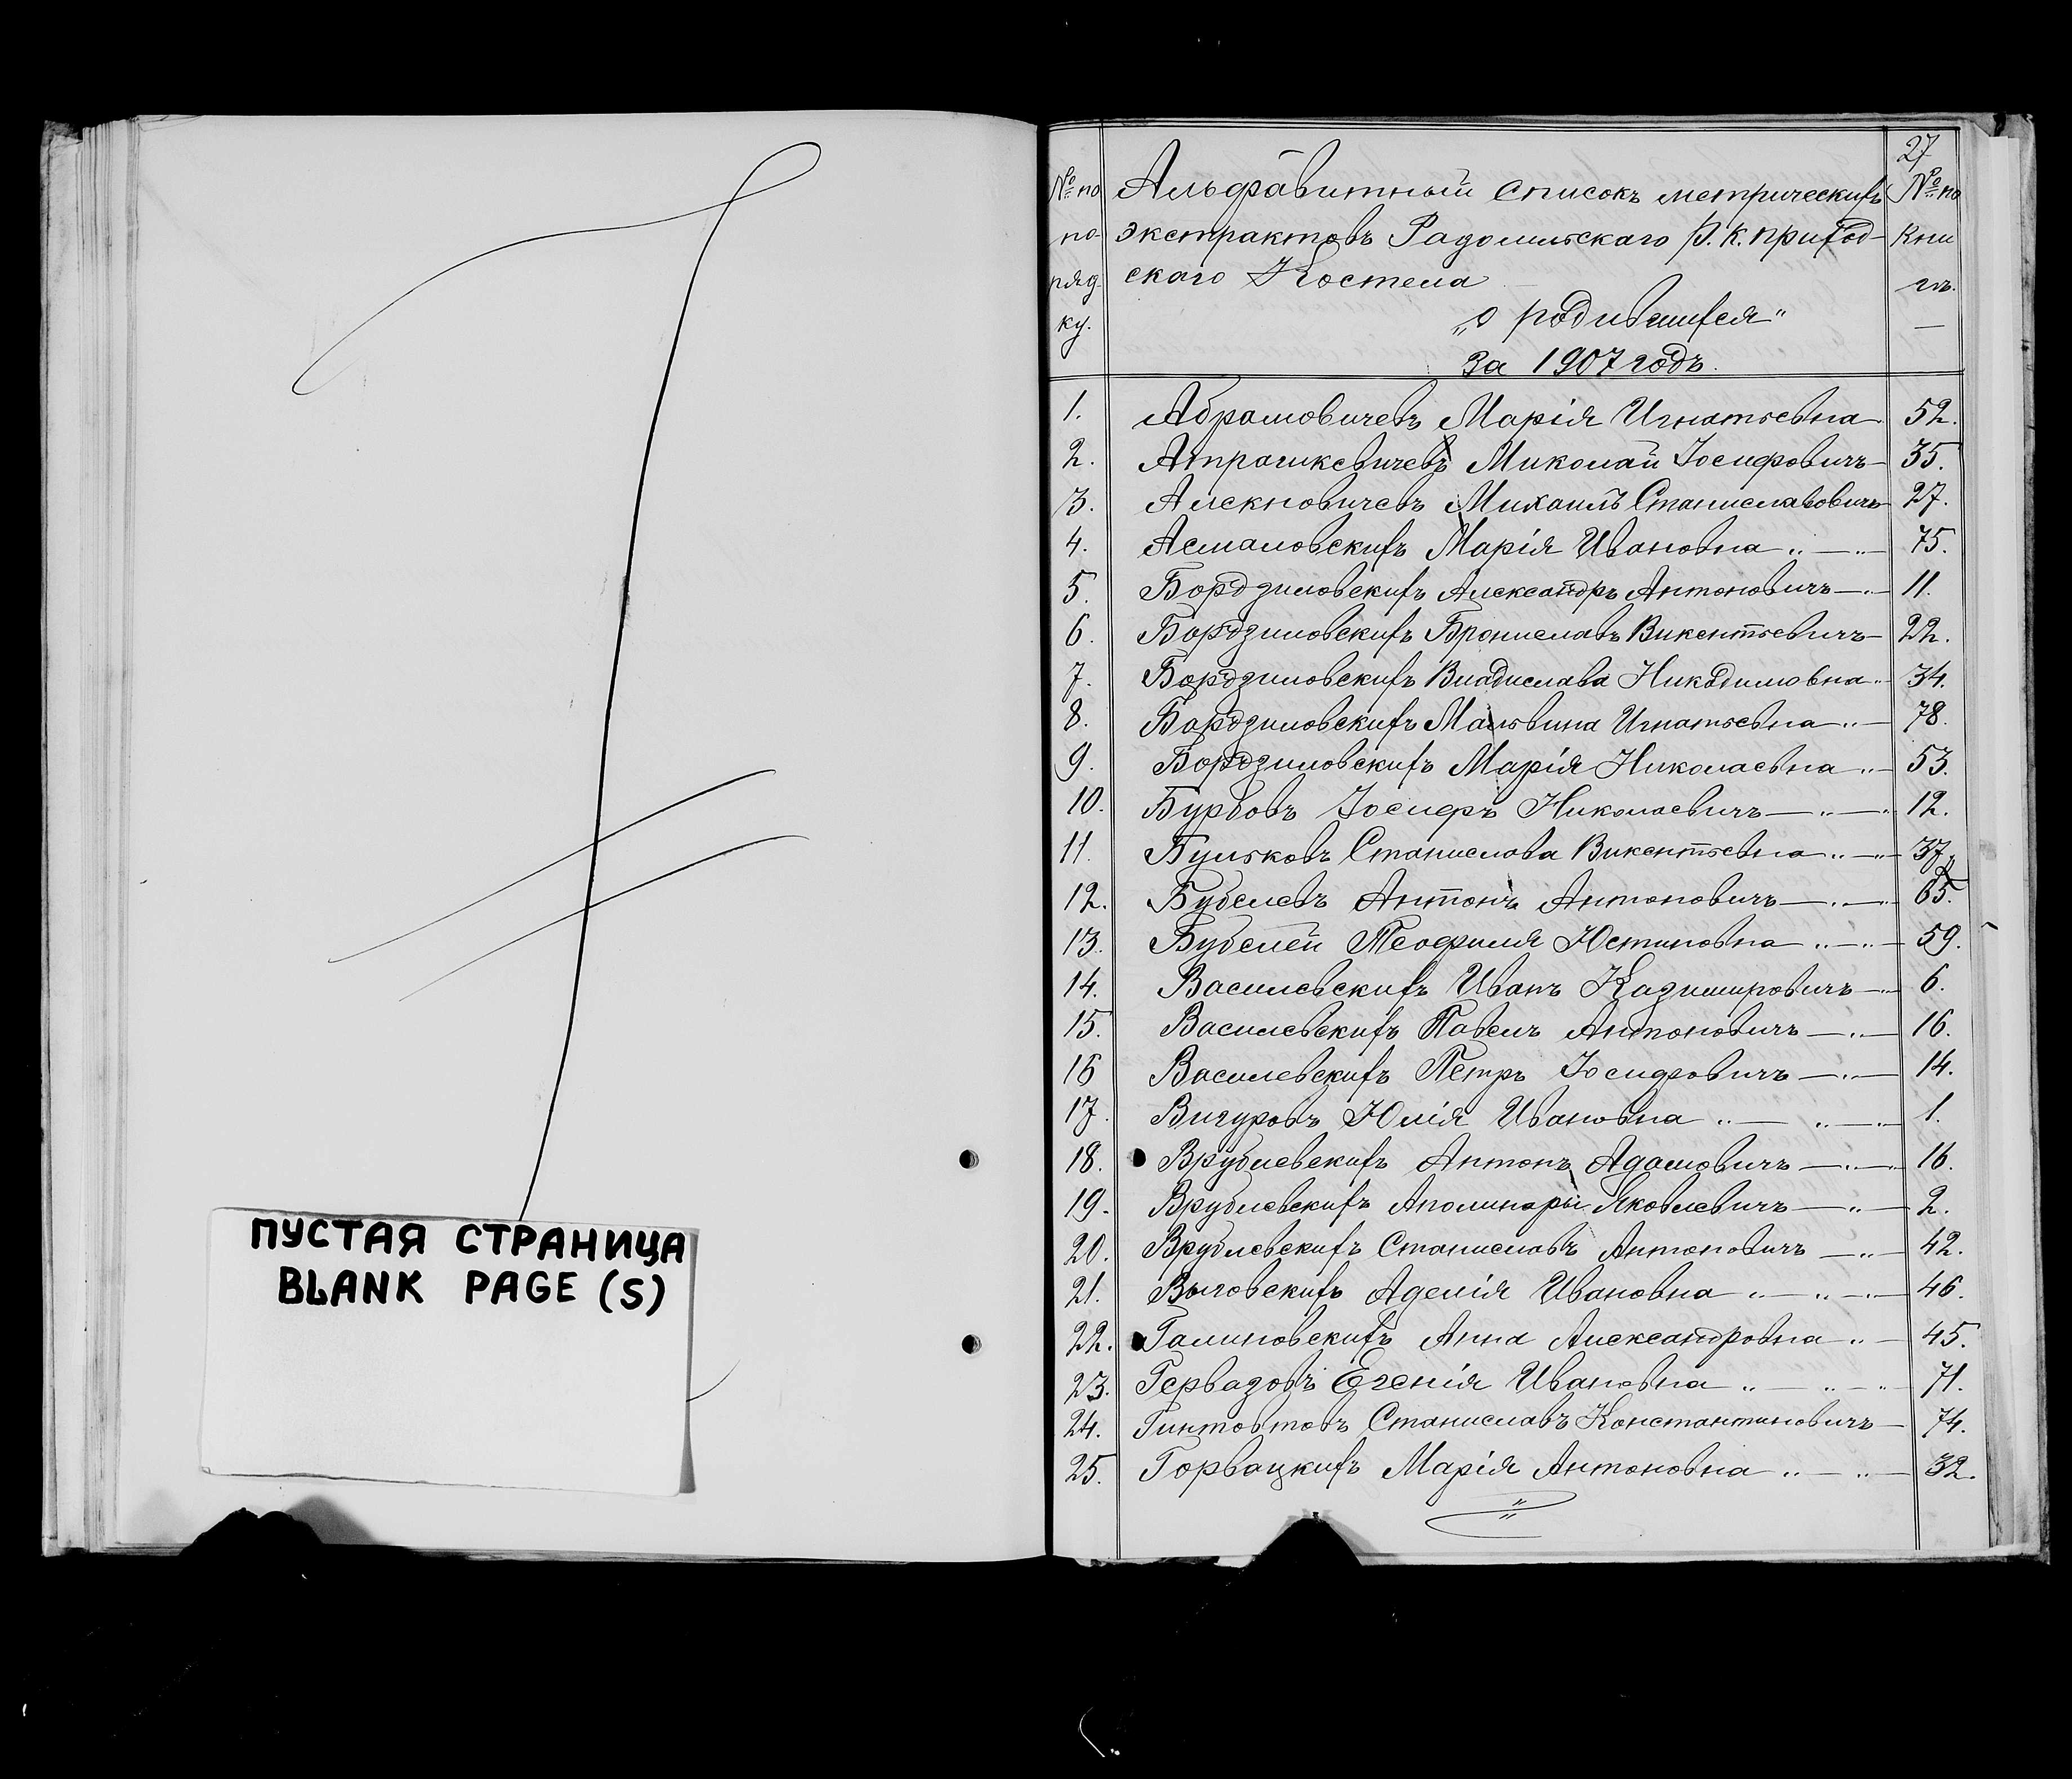 ПУСТАЯ СТРАНИЦА
BLANK PAGE (S)
27
№ по по-ряд-ку.
Альфавитный списокъ метрическихъ
экстрактовъ Радомльскаго Р. К. приход-
скаго Костела
„о родившихся"
за 1907 годъ.
№ по Кни гѣ. —
1. Абрамовичевъ Марія Игнатьевна 52.
2. Миколай Іосифовичъ — 35.
3. Алекновичевъ Михаилъ Станиславовичъ 27.
4. Асмаловскихъ Марія Ивановна „ — „ — 75.
5. Бордзиловскихъ Александръ Антоновичъ — „ — 11.
6. Бордзиловскихъ Брониславъ Викентьевичъ — 22.
7. Бордзиловскихъ Владислава Никодимовна „ 34.
8. Бордзиловскихъ Мальвина Игнатьевна „ — 78.
9. Бордзиловскихъ Марія Николаевна „ — 53.
10. Бурбовъ Іосифъ Николаевичъ — „ — „ 12.
11. Бульковъ Станислава Викентьевна „ — „ — 37.
12. Бубелевъ Антонъ Антоновичъ — „ — „ 65.
13. Бубелей Теофиля Юстиновна „ — „ — 59.
14. Василевскихъ Иванъ Казимировичъ — „ — 6.
15. Василевскихъ Павелъ Антоновичъ — „ — 16.
16 Василевскихъ Петръ Іосифовичъ — „ — 14.
17. Вигуровъ Юлія Ивановна „ — „ — „ — 1.
18. Врублевскихъ Антонъ Адамовичъ — „ — „ 16.
19. Врублевскихъ Аполинары Яковлевичъ — „ — 2.
20. Врублевскихъ Станиславъ Антоновичъ — „ — 42.
21. Выговскихъ Аделія Ивановна „ — „ — „ — 46.
22. Галиновскихъ Анна Александровна „ — 45.
23. Гервазовъ Егенія Ивановна „ — „ — „ 71.
24. Гинтовтовъ Станиславъ Константиновичъ — 74.
25. Горвацкихъ Марія Антоновна „ — „ — 32.